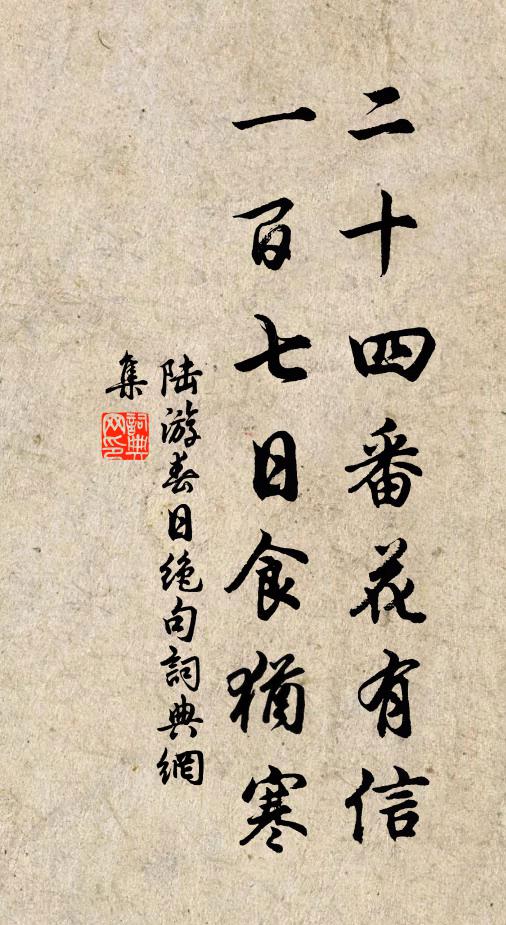 二十四番花有信
一百七日食猶寒
陆游春日绝句詞典網
集
詞典網印